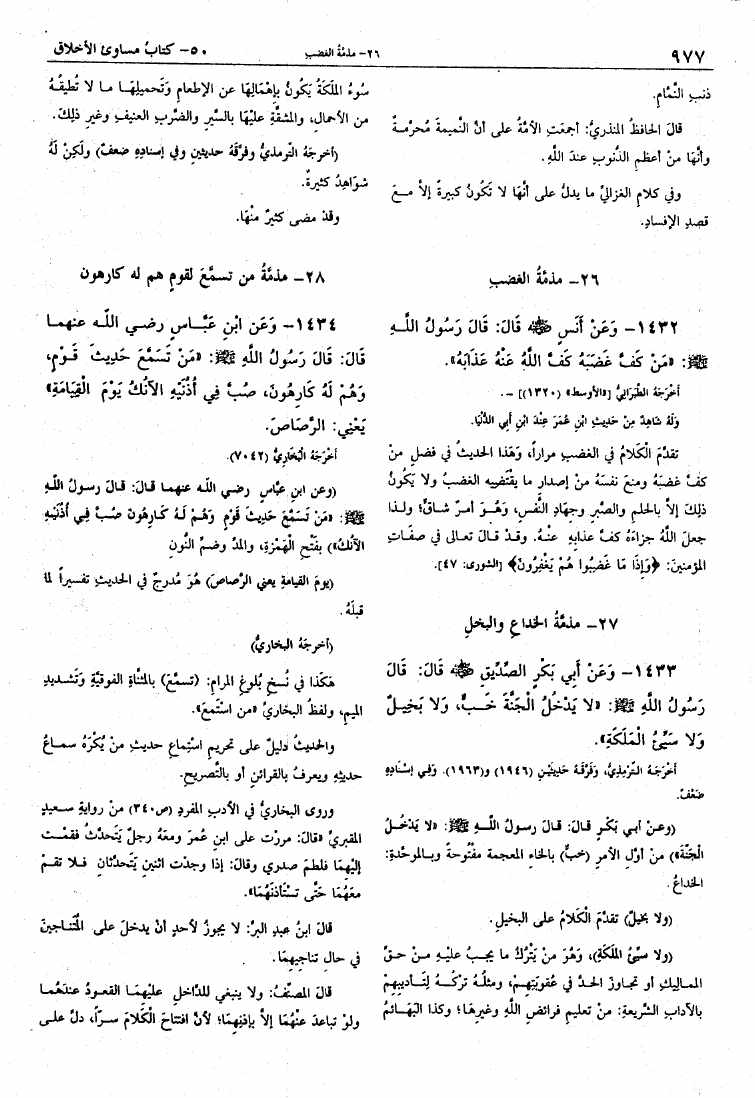 ٩٧٧
٢٦- مذمَّةُ الغضبِ
٥٠- كتابُ مساوئ الأخلاق
ذنبِ النَّمامِ.
قالَ الحافظُ المنذريُّ: أجمعتِ الأمَّةُ على أنَّ النَّميمةَ مُحرَّمةٌ
وأنَّها منْ أعظمِ الذُّنوبِ عندَ اللَّهِ.
وفي كلامِ الغزاليِّ ما يدلُّ على أنَّها لا تَكُونُ كبيرةً إلاَّ معَ
قصدِ الإفسادِ.
٢٦- مذمَّةُ الغضبِ
١٤٣٢- وَعَنْ أَنَسٍ ﷺ قَالَ: قَالَ رَسُولُ اللَّهِ
ﷺ: «مَنْ كَفَّ غَضَبَهُ كَفَّ اللَّهُ عَنْهُ عَذَابَهُ».
أخرجَهُ الطَّبَرانيُّ [«الأوسط» (١٣٢٠)] -.
وَلَهُ شَاهِدٌ مِنْ حَدِيثِ ابنِ عُمَرَ عِنْدَ ابْنِ أَبِي الدُّنْيَا.
تقدَّمَ الْكَلامُ في الغضبِ مراراً، وَهَذا الحديثُ في فضلِ منْ
كفَّ غضبَهُ ومنعَ نفسَهُ منْ إصدارِ ما يقْتضيه الغضبُ ولا يَكُونُ
ذلِكَ إلاَّ بالحلمِ والصَّبرِ وجهادِ النَّفسِ، وَهُوَ أمرٌ شاقٌّ؛ ولذا
جعلَ اللَّهُ جزاءَهُ كفَّ عذابِهِ عنْهُ. وقدْ قالَ تعالى في صفاتِ
المؤمنينَ: ﴿وَإِذَا مَا غَضِبُوا هُمْ يَغْفِرُونَ﴾ [الشورى: ٤٧].
٢٧- مذمَّةُ الخداعِ والبخلِ
١٤٣٣- وَعَنْ أَبِي بَكْرٍ الصِّدِّيقِ ﷺ قَالَ: قَالَ
رَسُولُ اللَّهِ ﷺ: «لا يَدْخُلُ الْجَنَّةَ خَبٌّ، وَلا بَخِيلٌ
وَلا سَيِّئُ الْمَلَكَةِ».
أَخرَجَهُ التِّرْمِذِيُّ، وَفَرَّقَهُ حَدِيثَيْنِ (١٩٤٦) و(١٩٦٣). وَفِي إِسْنَادِهِ
ضَعْفٌ.
(وعنْ أبي بَكْرٍ قالَ: قالَ رسولُ اللَّهِ ﷺ: «لا يَدْخُلُ
الْجَنَّةَ») منْ أوَّلِ الأمرِ (خبٌّ) بالخاءِ المعجمة مفْتُوحةً وبالموحَّدةِ:
الخداعُ.
(ولا بخيلٌ) تقدَّمَ الْكَلامُ على البخيلِ.
(ولا سيِّئُ المَلَكَةِ)، وَهُوَ منْ يَتْرُكُ ما يجبُ عليْهِ منْ حقِّ
المماليكِ أو تجاوزَ الحدَّ في عُقوبتِهِمْ، ومثلُهُ تركُهُ لِتَأديبِهِمْ
بالآدابِ الشَّرعيَّةِ: منْ تعليمِ فرائضِ اللَّهِ وغيرِهَا؛ وكذا البَهَائمُ
سُوءُ المَلَكَةِ يَكُونُ بإهْمَالِهَا عنِ الإطعامِ وَتَحميلِهَا ما لا تُطيقُهُ
من الأحمالِ، والمشقَّةِ عليْهَا بالسَّيرِ والضَّربِ العنيفِ وغيرِ ذلِكَ.
(أخرجَهُ التّرمذيُّ وفرَّقَهُ حديثينِ وفي إسنادِهِ ضعفٌ) ولَكِنْ لَهُ
شواهدُ كثيرةٌ.
وقدْ مضى كثيرٌ منْهَا.
٢٨- مذمَّةُ من تسمَّعَ لقومٍ هم له كارهون
١٤٣٤- وَعَن ابْنِ عَبَّاسٍ رضي اللَّه عنهما
قَالَ: قَالَ رَسُولُ اللَّهِ ﷺ: «مَنْ تَسَمَّعَ حَدِيثَ قَوْمٍ،
وَهُمْ لَهُ كَارِهُونَ، صُبَّ فِي أُذُنَيْهِ الآنُكُ يَوْمَ الْقِيَامَةِ»
يَعْنِي: الرَّصَاصَ.
أَخْرَجَهُ الْبُخَارِيُّ (٧٠٤٢).
(وعنِ ابنِ عبَّاسٍ رضي اللَّه عنهما قالَ: قالَ رسولُ اللَّهِ
ﷺ: «مَنْ تَسَمَّعَ حَدِيثَ قَوْمٍ وَهُمْ لَهُ كَارِهُونَ صُبَّ فِي أُذُنَيْهِ
الآنُكُ») بفَتْحِ الْهَمْزةِ، والمدِّ وضمِّ النُّونِ
(يومَ القيامةِ يعني الرَّصاصَ) هُوَ مُدرجٌ في الحديثِ تفسيراً لما
قبلَهُ.
(أخرجَهُ البخاريُّ)
هَكَذا في نُسخِ بُلُوغِ المرامِ: (تسمَّعَ) بالمثنَّاةِ الفوقيَّةِ وَتَشديدِ
الميمِ، ولفظُ البخاريِّ «من استمعَ».
والحديثُ دليلٌ على تحريمِ اسْتِماعِ حديثِ منْ يُكْرَهُ سماعُ
حديثِهِ ويعرفُ بالقرائنِ أو بالتَّصريحِ.
وروى البخاريُّ في الأدبِ المفردِ (ص٣٤٠) منْ روايةِ سعيدٍ
المقبريِّ «قالَ: مررْت على ابنِ عُمَرَ ومعَهُ رجلٌ يَتَحدَّثُ فقمْت
إليْهِمَا فلطمَ صدري وقالَ: إذا وجدْت اثنينِ يَتَحدَّثانِ فلا تقمْ
معَهُمَا حَتَّى تسْتَأذنَهُمَا».
قالَ ابنُ عبدِ البرِّ: لا يجوزُ لأحدٍ أنْ يدخلَ على المُتَناجينَ
في حالِ تناجيهِمَا.
قالَ المصنِّفُ: ولا ينبغي للدَّاخلِ عليْهِمَا القعودُ عندَهُمَا
ولوْ تباعدَ عنْهُمَا إلاَّ بإذنِهِمَا؛ لأنَّ افْتتاحَ الْكَلامِ سرّاً، دلَّ على